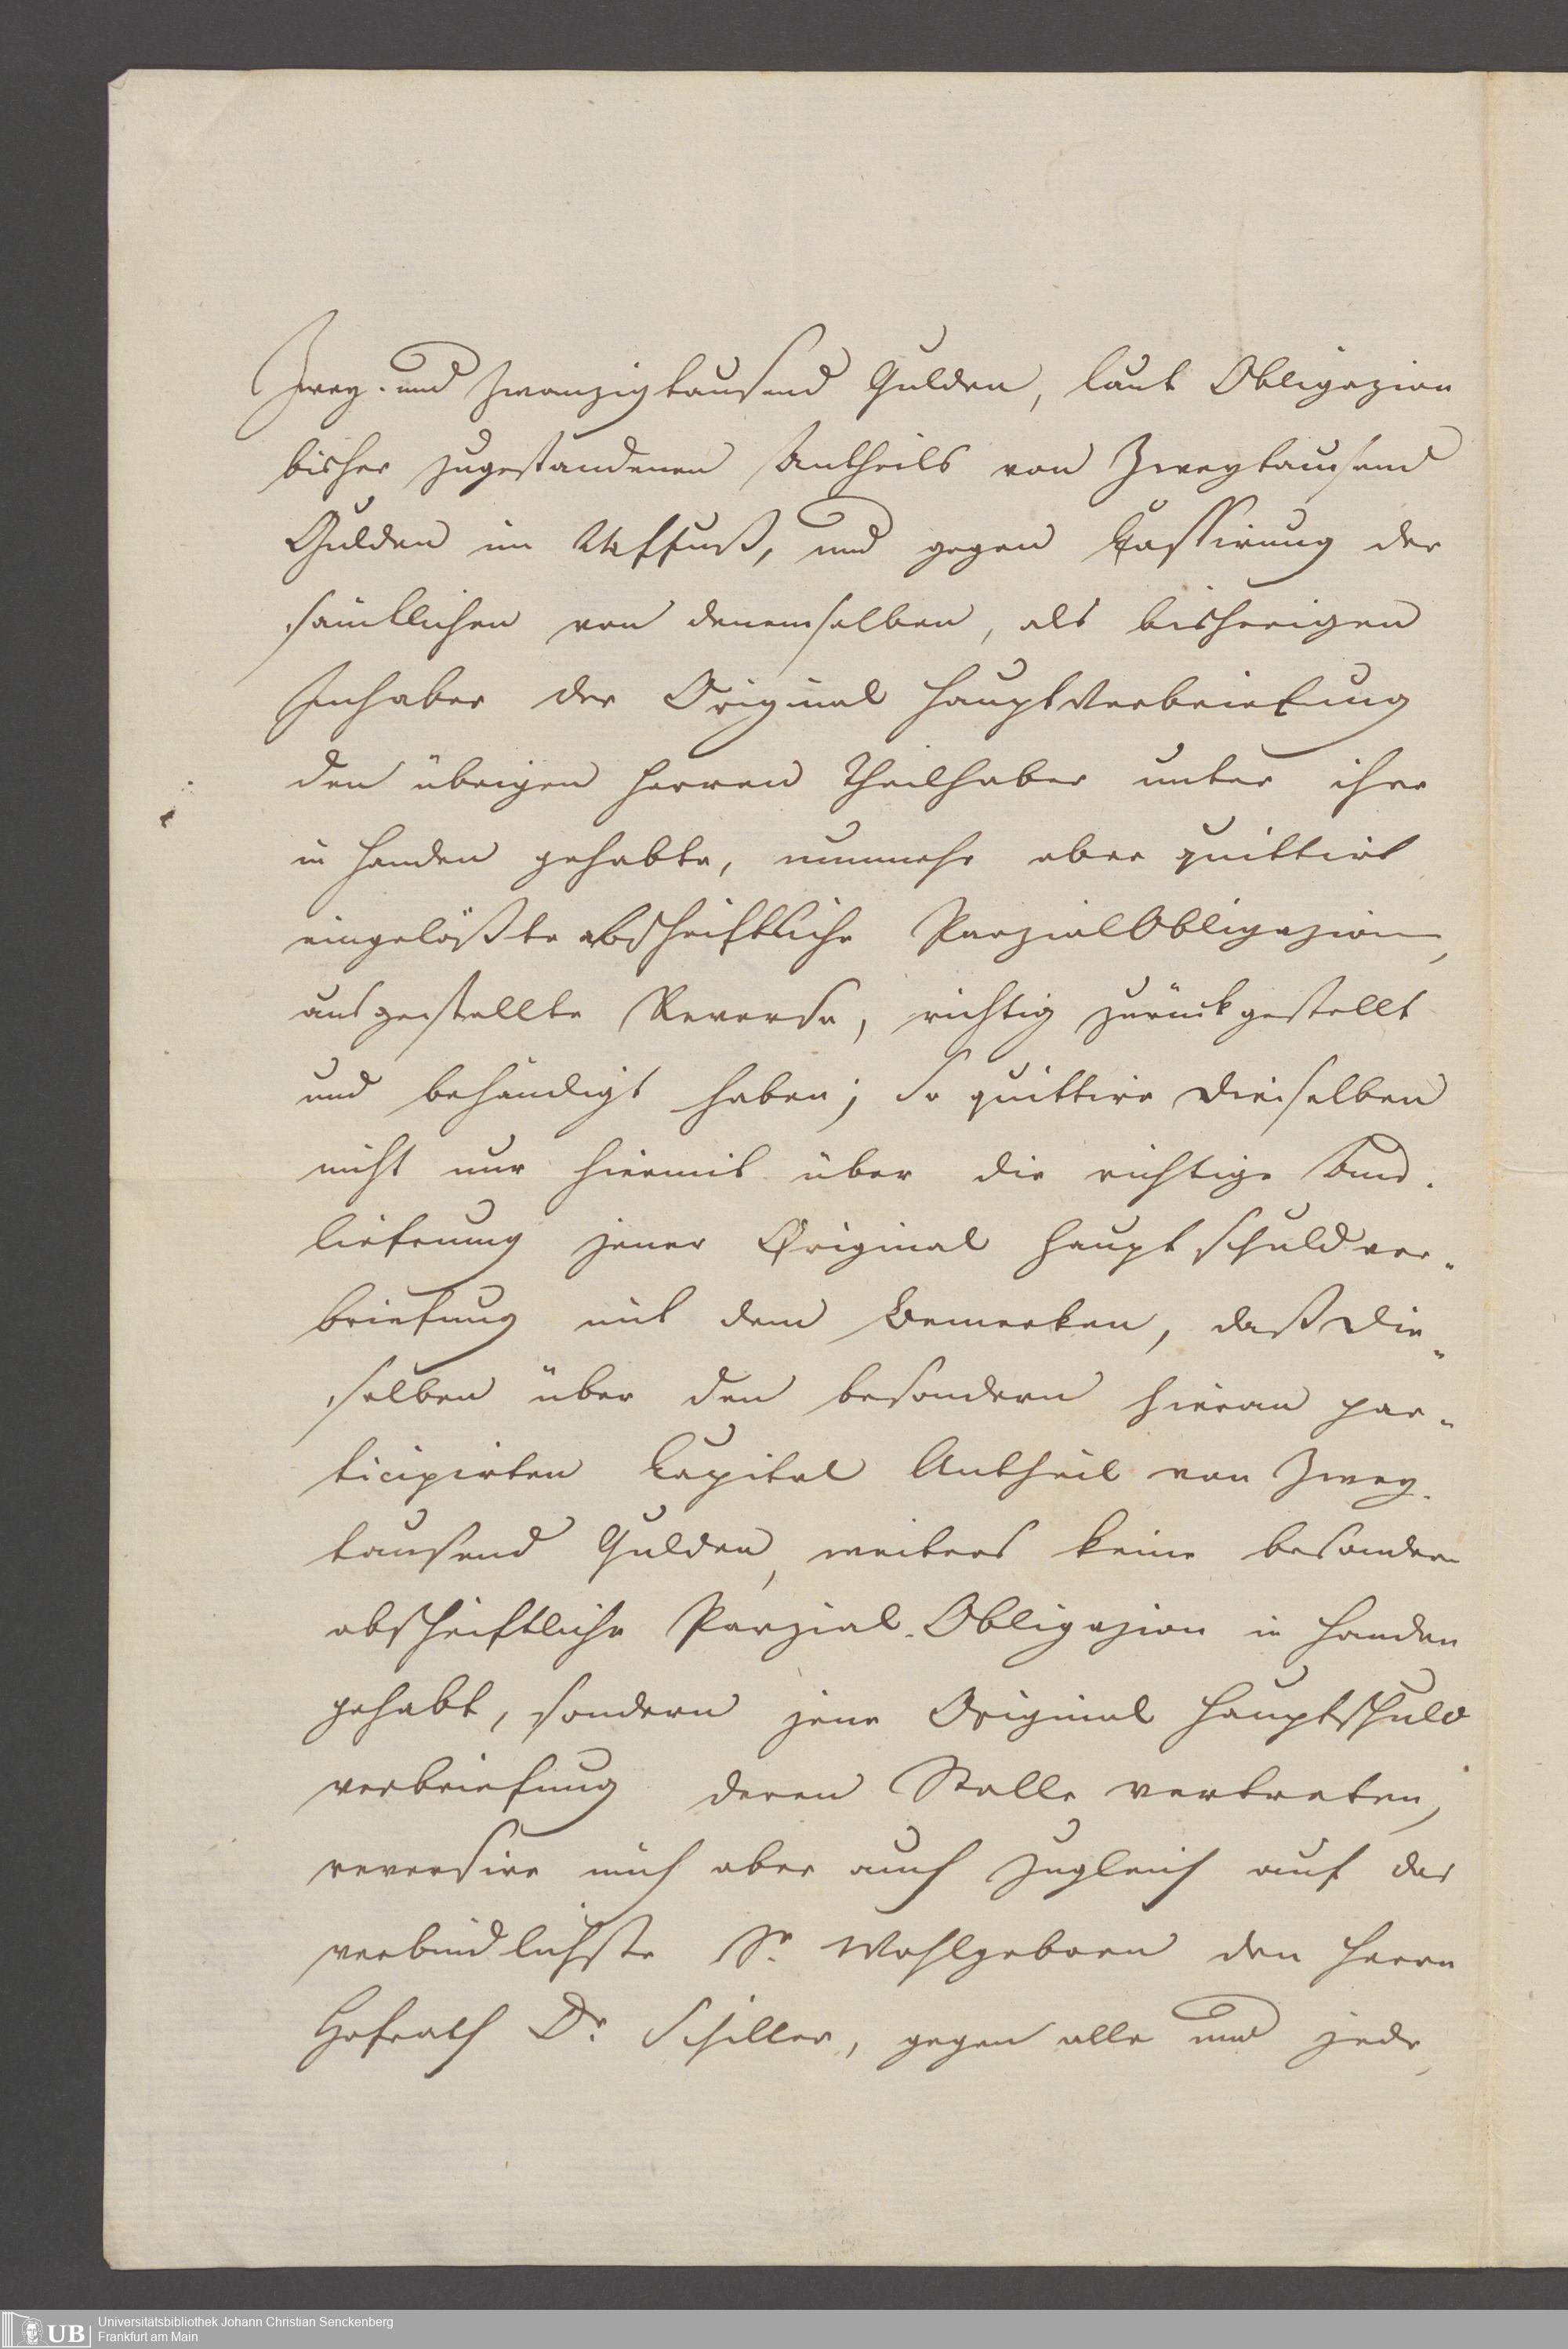 Zwey- und zwanzigtausend Gulden, laut Obligazion
bisher zugestandenen Antheils von Zweytausend
Gulden im 24 ffuß, und gegen Cassirung der
sämtlichen von denenselben, als bisherigen
Inhaber der Original HauptVerbriefung
den übrigen Herren Theilhaber unter ihre
in Handen gehabte, nunmehr aber quittirt
eingelößte abschriftliche ParzialObligazion,
ausgestellte Reverse, richtig zurückgestellt
und behändigt haben; So quittire Dieselben
nicht nur hiermit über die richtige Aus-
lieferung jener Original Haupt Schuldver-
briefung mit dem Bemerken, daß Die-
selben über den besondern hieran par-
ticipirten Capital Antheil von Zwey-
tausend Gulden, weiters keine besondere
abschriftliche Parzial-Obligazion in Handen
gehabt, sondern jene Original Hauptschuld
verbriefung deren Stelle vertreten,
reversire mich aber auch zugleich auf das
verbindlichste Sr. Wohlgeboren den Herrn
Hofrath Dr. Schiller, gegen alle und jede
UB
Universitätsbibliothek Johann Christian Senckenberg
Frankfurt am Main